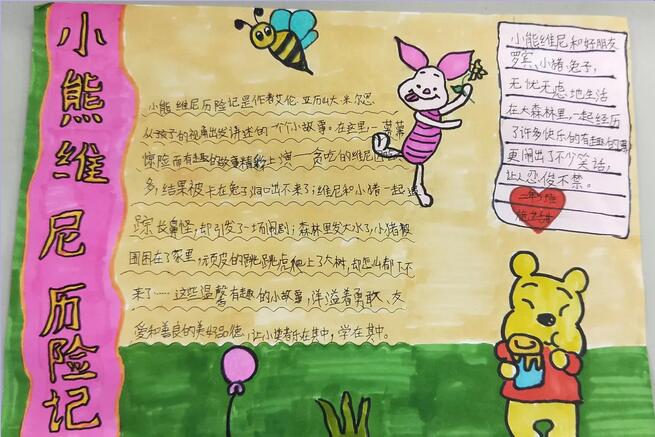 小熊維尼历险记
小熊維尼历险记是作者艾伦·亚历山大·米尔恩
从孩子的视角出发讲述的一个个小故事。在这里一幕幕
惊险而有趣的故事精彩上演——贪吃的维尼因
多,结果被卡在兔子洞口出不来了;维尼和小猪一起追
踪长鼻怪,却引发了一场闹剧;森林里发大水了,小猪被
围困在了家里,顽皮的跳跳虎爬上了大树,却怎么都下不
来了……这些温馨有趣的小故事,洋溢着勇敢、友
爱和善良的美好品德,让小读者乐在其中,学在其中。
小熊维尼和好朋友
罗宾、小猪、兔子,
无忧无虑地生活
在大森林里,一起经历
了许多快乐的有趣的事
更闹出了不少笑话,
让人忍俊不禁。